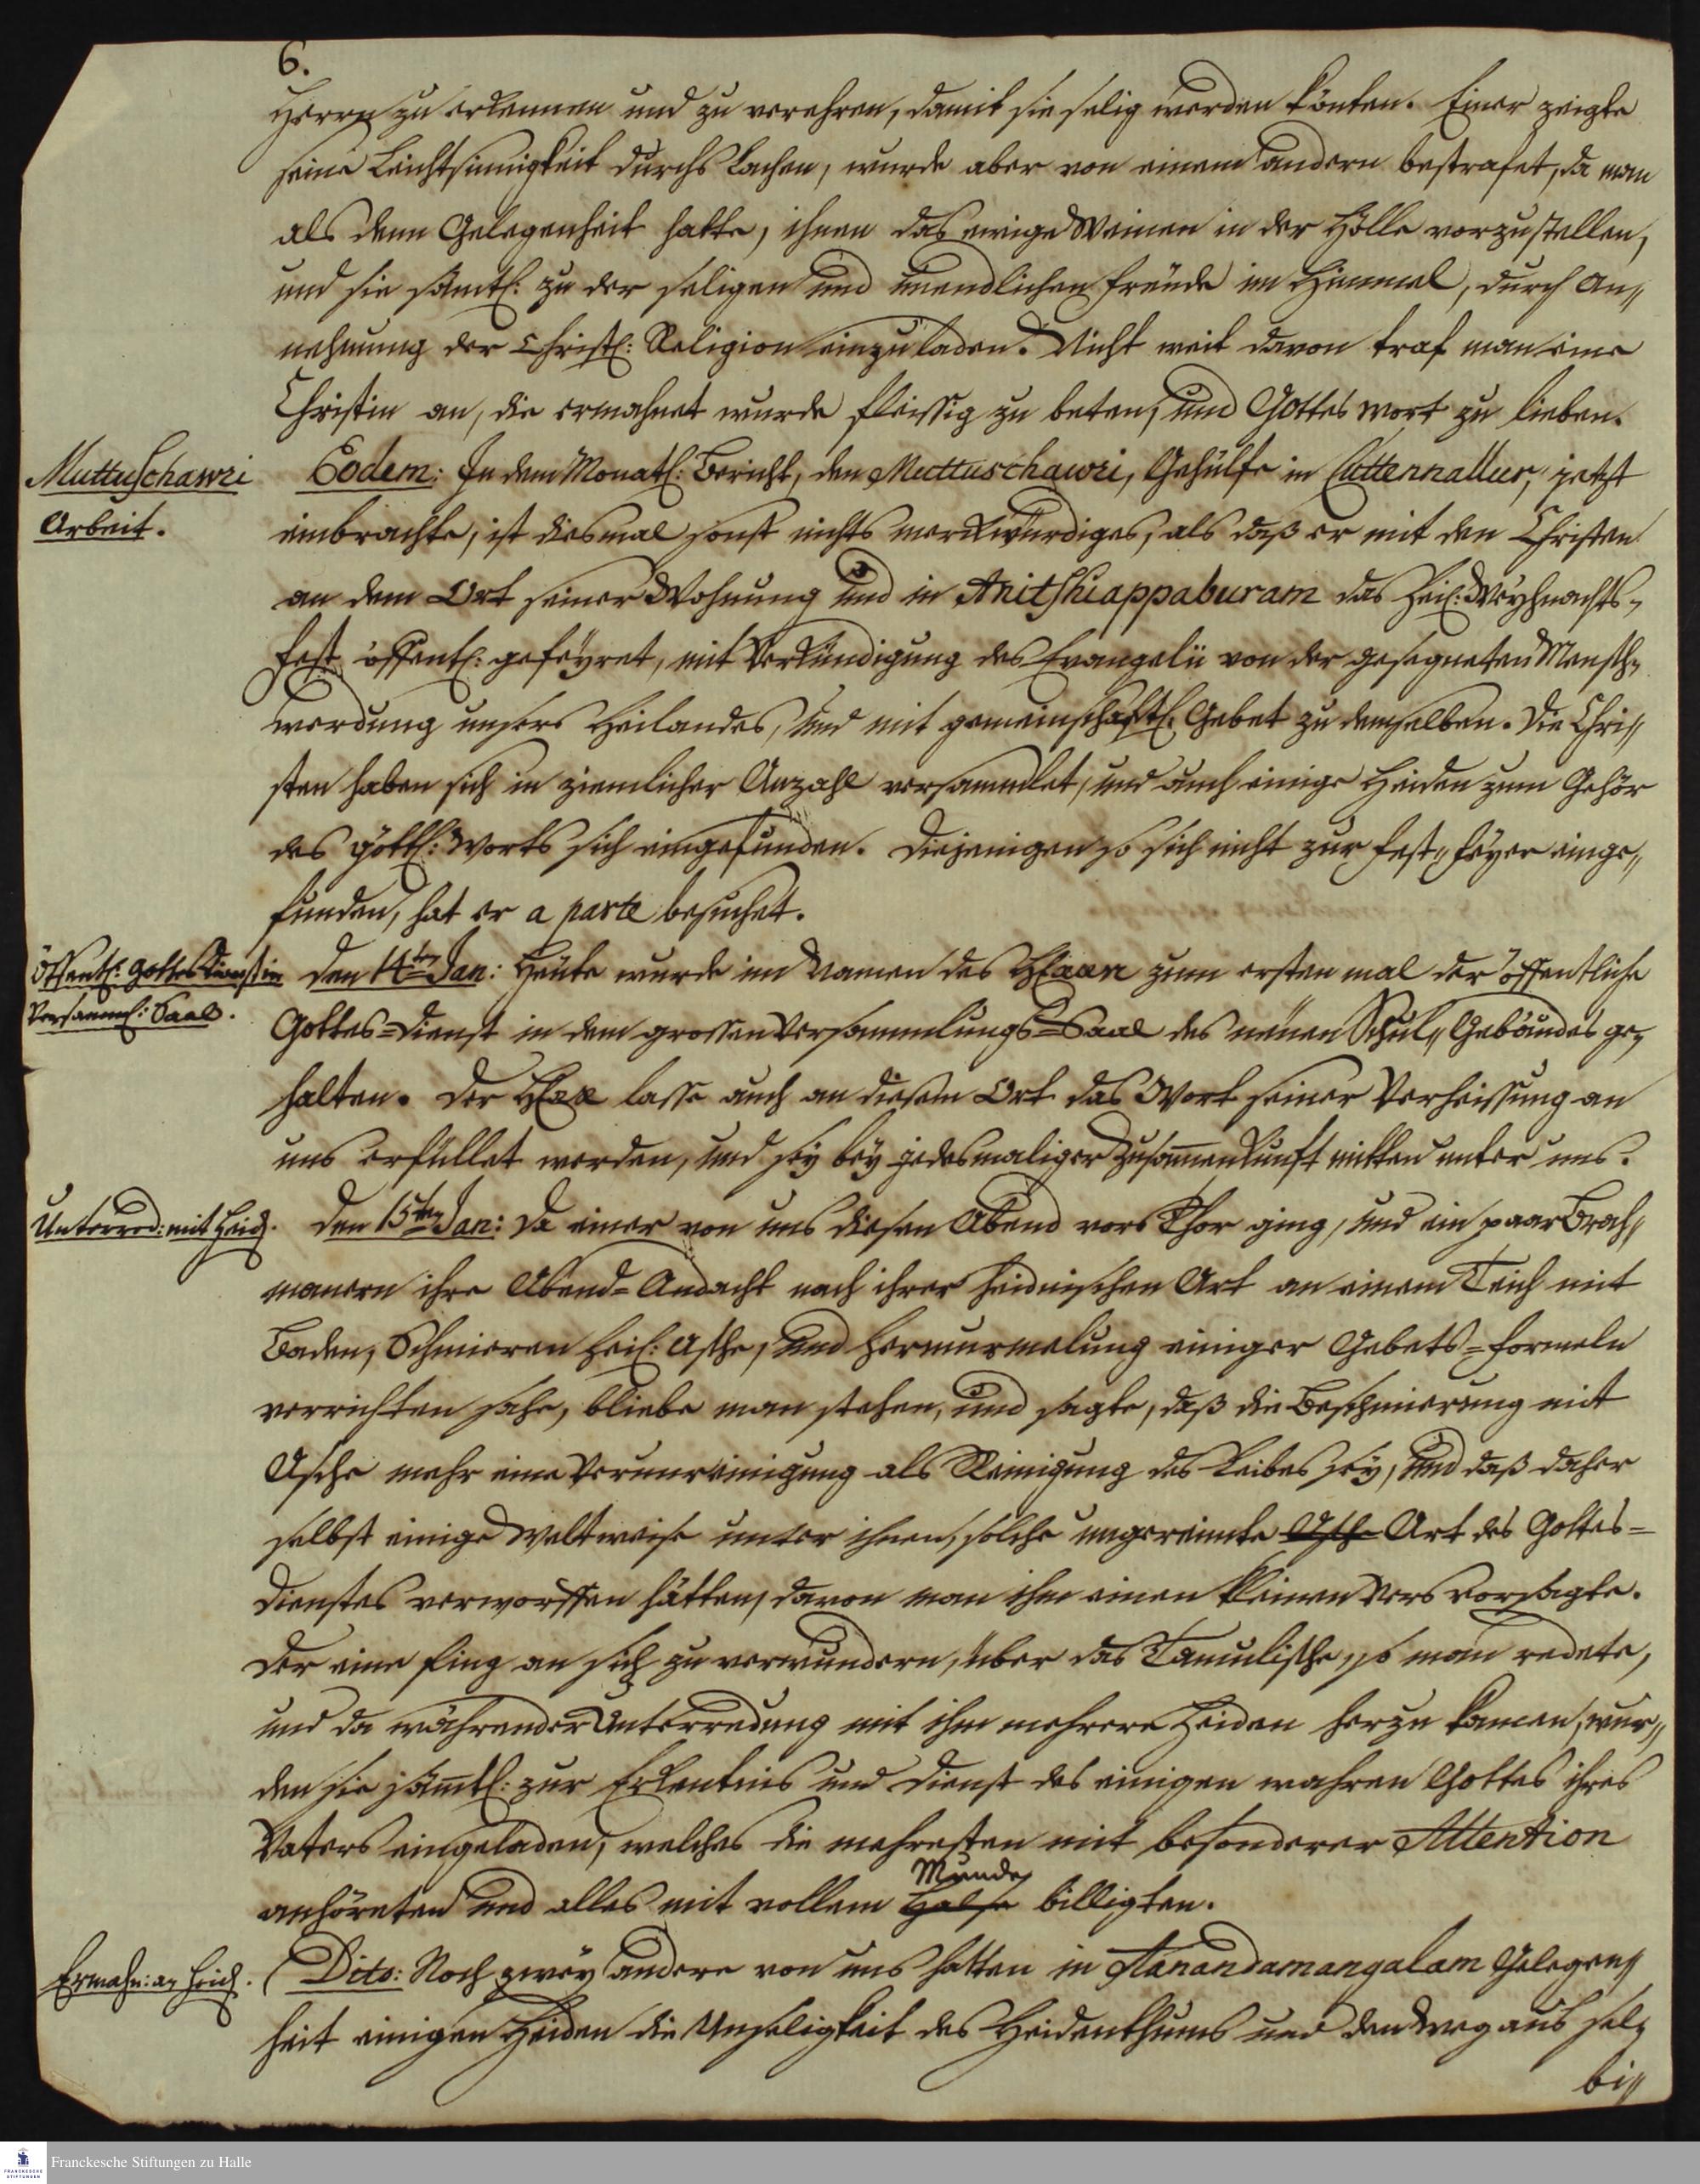 6.
Herrn zu erkennen und zu verehren, damit sie selig werden könten. Einer zeigte
seine Leichtsinnigkeit durchs Lachen, wurde aber von einem andern bestrafet, da man
als denn Gelegenheit hatte, ihnen das ewige Weinen in der Hölle vorzustellen,
und sie sämtl: zu der seligen und unendlichen Freude im Himmel, durch An„
nehmung der Christl: Religion einzuladen. Nicht weit davon traf man eine
Christin an, die ermahnet wurde fleissig zu beten, und Gottes wort zu lieben.
Muttuschawri
Arbeit.
Eodem: In dem Monatl: Bericht, den Muttuschawri, Gehülfe in Cuttennallur, jetzt
einbrachte, ist diesmal sonst nichts merckwürdiges, als daß er mit den Christen
an dem Ort seiner Wohnung und in Anitshiappaburam das heil: Weyhnachts-
fest öffentl: gefeyret, mit Verkündigung des Evangelii von der gesegneten Mensch-
werdung unsers Heilandes, und mit gemeinschaftl: Gebet zu demselben. Die Chri„
sten haben sich in ziemlicher Anzahl versammlet, und auch einige Heiden zum Gehör
des göttl: Worts sich eingefunden. Diejenigen so sich nicht zur Fest„feyer einge„
funden, hat er a parte besuchet.
Öffentl: Gottesdienst in
Versamml: Saal.
Den 14ten Jan: Heute wurde im Namen des HErrn zum ersten mal der öffentliche
Gottes=dienst in dem grossen Versammlungs=Saal des neuen Schul„Gebäudes ge-
halten. Der HErr lasse auch an diesem Ort das Wort seiner Verheissung an
uns erfüllet werden, und sey bey jedesmaliger Zusammenkunft mitten unter uns.
Unterred: mit Heid.
Den 15ten Jan: Da einer von uns diesen Abend vors Thor ging, und ein paar Brah„
manern ihre Abend=Andacht nach ihrer heidnischen Art an einem Teich mit
Baden, Schmieren heil: Asche, und Hermurmelung einiger Gebets=formeln
verrichten sahe, bliebe man stehen, und sagte, daß die Beschmierung mit
Asche mehr eine Verunreinigung als Reinigung des Leibes sey, und daß daher
selbst einige Weltweise unter ihnen, solche ungereimte Asche Art des Gottes=
dienstes verworffen hätten, davon man ihm einen kleinen Vers vorsagte.
Der eine fing an sich zu verwundern, über das Tamulische, so man redete,
und da währender Unterredung mit ihm mehrere Heiden herzu kamen, wur„
den sie sämtl: zur Erkentnis und Dienst des einigen wahren Gottes ihres
Vaters eingeladen, welches die mehresten mit besonderer Attention
anhöreten und alles mit vollem Halse Munde billigten.
Ermahn: an Heid.
Dito: Noch zwey andere von uns hatten in Anandamangalam Gelegen„
heit einigen Heiden die Unseligkeit des Heidenthums und den Weg aus sel-
bi„
Franckesche Stiftungen zu Halle